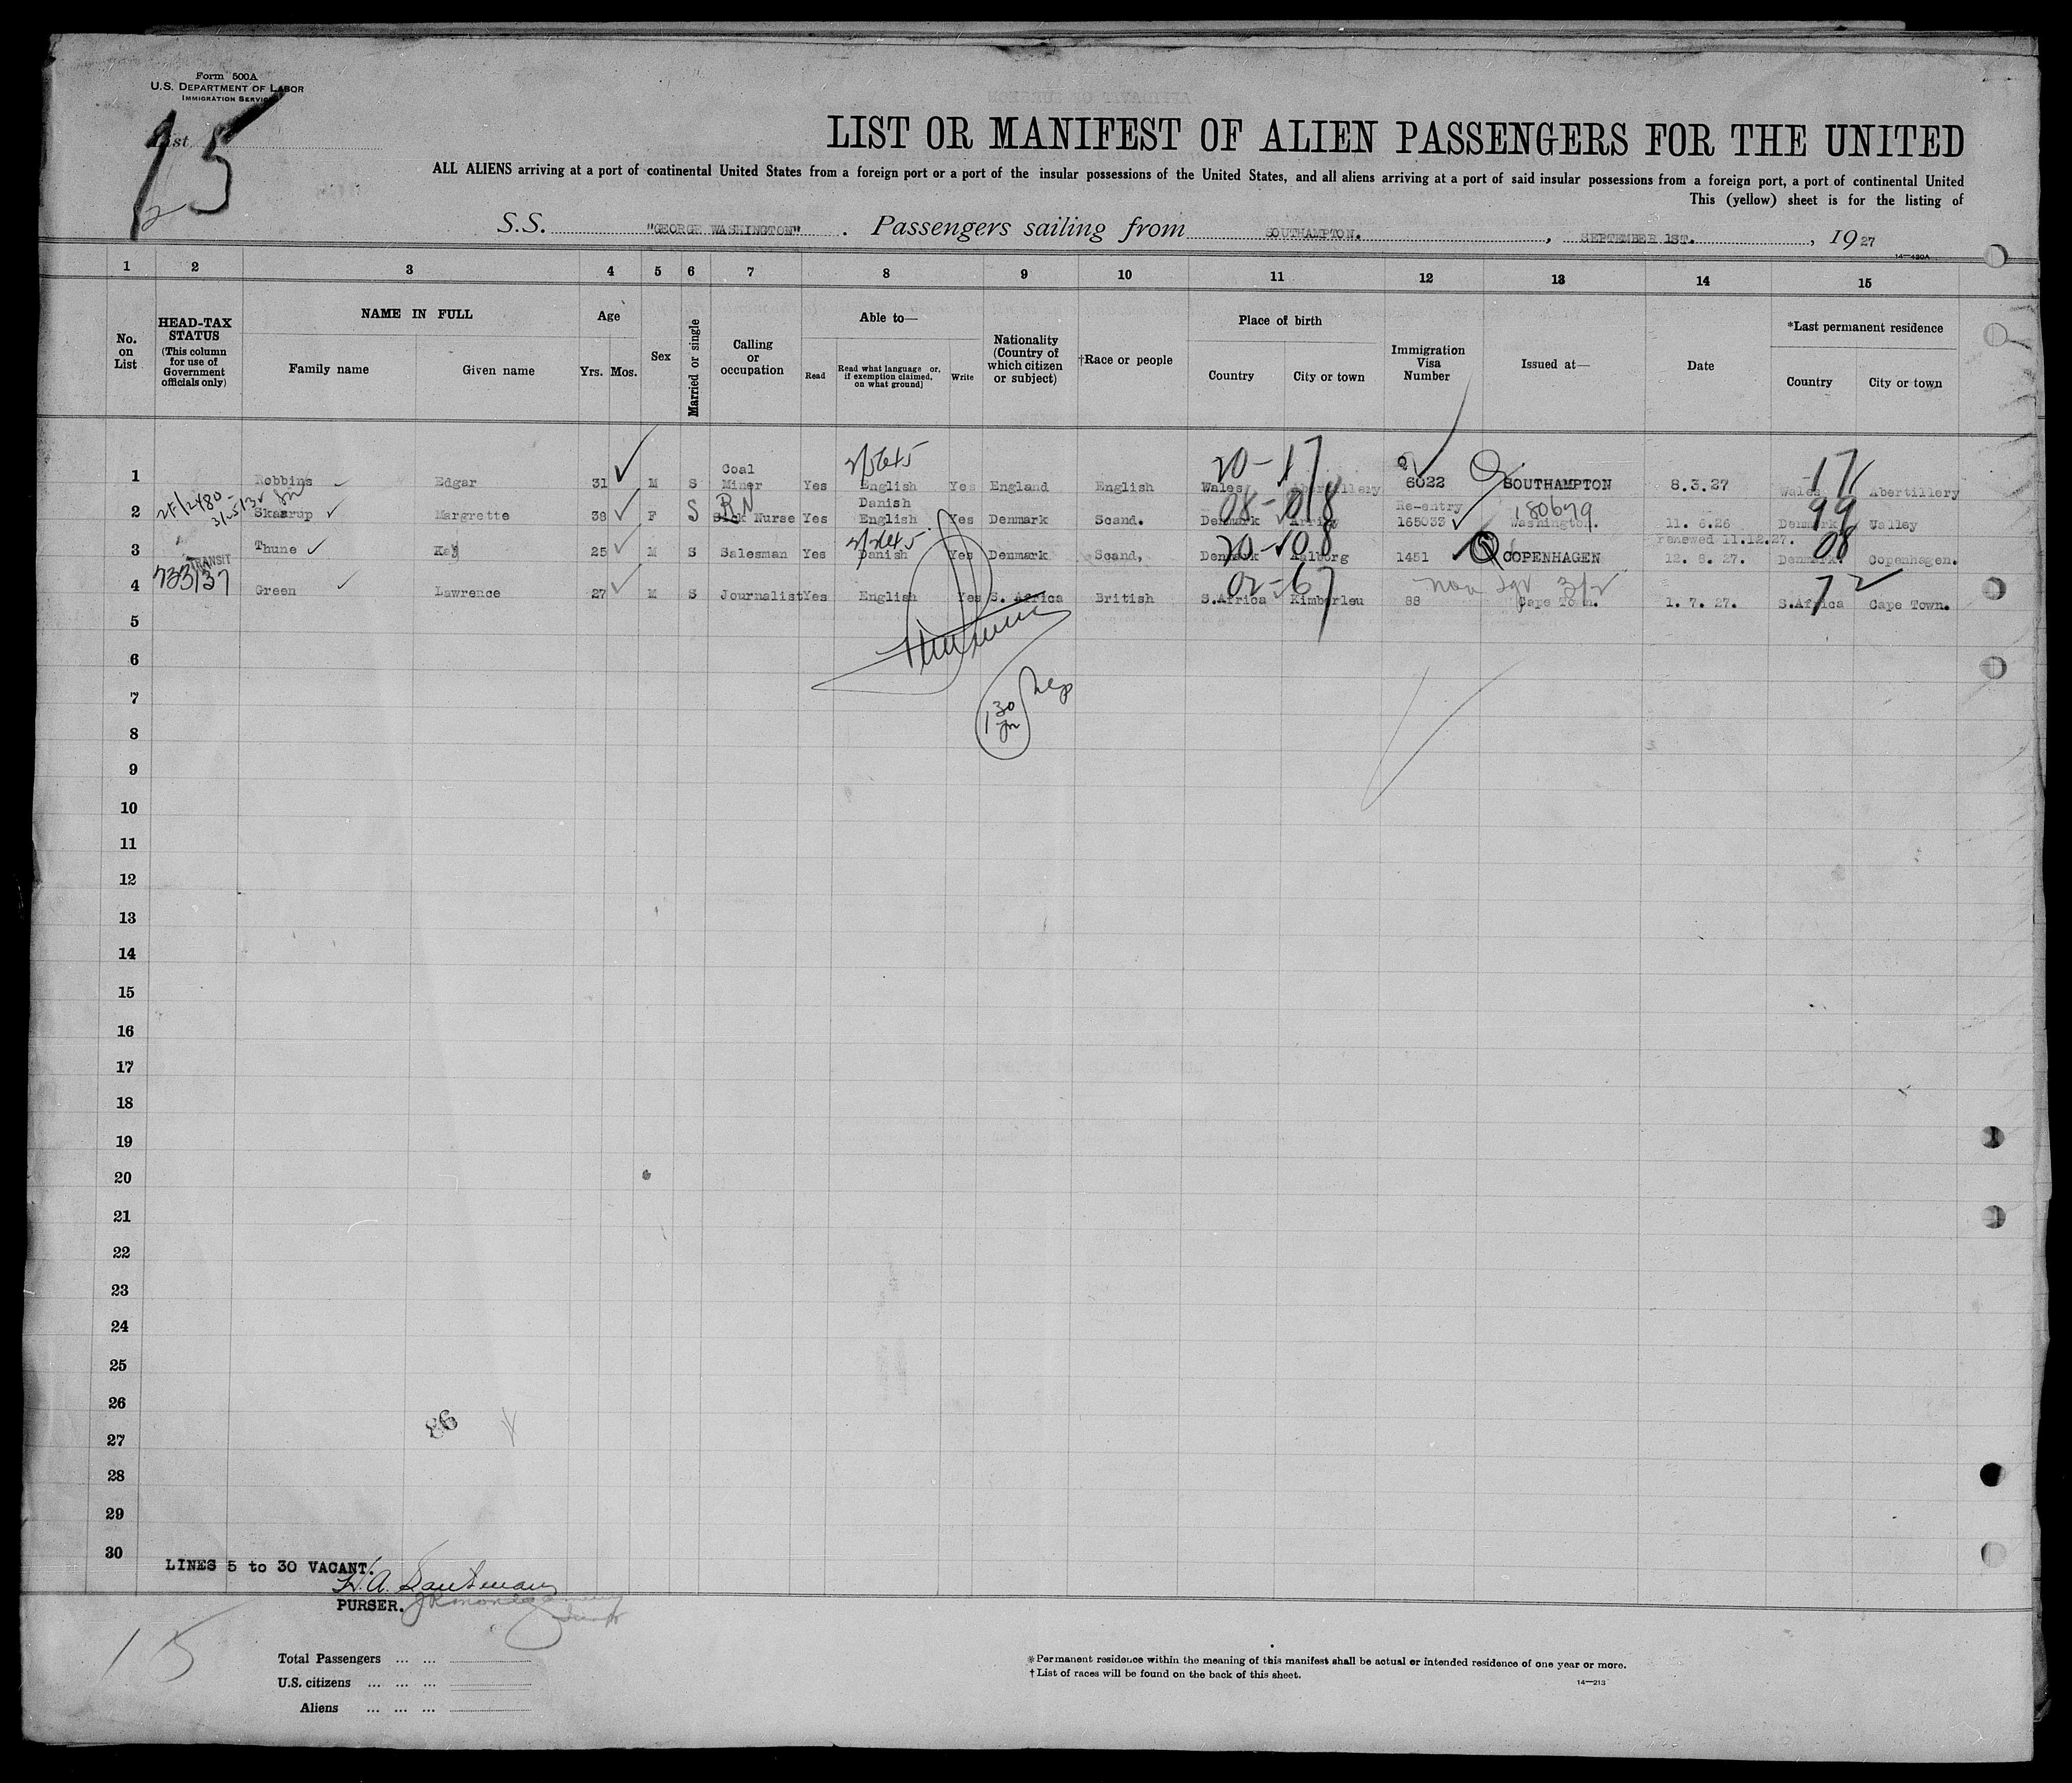 Form 500A
U.S. DEPARTMENT OF LABOR
IMMIGRATION SERVICE
List
15
LIST OR MANIFEST OF ALIEN PASSENGERS FOR THE UNITED
ALL ALIENS arriving at a port of continental United States from a foreign port or a port of the insular possessions of the United States, and all aliens arriving at a port of said insular possessions from a foreign port, a port of continental United
This (yellow) sheet is for the listing of
S.S. "GEORGE WASHINGTON". Passengers sailing from SOUTHAMPTON. , SEPTEMBER 1ST. , 1927
14—430A
1 2 3 4 5 6 7 8 9 10 11 12 13 14 15
No. on List
HEAD-TAX STATUS (This column for use of Government officials only)
NAME IN FULL
Family name Given name
Age
Yrs. Mos.
Sex
Married or single
Calling or occupation
Able to—
Read Read what language or, if exemption claimed, on what ground] Write
Nationality (Country of which citizen or subject)
†Race or people
Place of birth
Country City or town
Immigration Visa Number
Issued at—
Date
*Last permanent residence
Country City or town
1 Robbins Edgar 31 M S Coal Miner Yes English Yes England English Wales Abertillery 6022 SOUTHAMPTON 8.3.27 Wales Abertillery
20-17 17
2 Skaarup Margrette 38 F S Sick Nurse Yes Danish English Yes Denmark Scand. Denmark Re-entry 165033 Washington. 11. 6.26 renewed 11.12.27. Denmark Ualley
RN 180679 99
3 Thune Kay 25 M S Salesman Yes Danish Yes Denmark Scand, Denmark Aalborg 1451 COPENHAGEN 12. 8. 27. Denmark. Copenhagen.
20-08 08
TRANSIT
4 Green Lawrence 27 M S Journalist Yes English Yes S. Africa British S.Africa Kimberleu 88 Cape Town. 1. 7. 27. S.Africa Cape Town.
02-67 72
5
6
7
8
9
10
11
12
13
14
15
16
17
18
19
20
21
22
23
24
25
26
86
27
28
29
30
LINES 5 to 30 VACANT.
PURSER.
15
Total Passengers ... ...
U.S. citizens ... ... ...
Aliens ... ... ...
*Permanent residence within the meaning of this manifest shall be actual or intended residence of one year or more.
†List of races will be found on the back of this sheet.
14—213